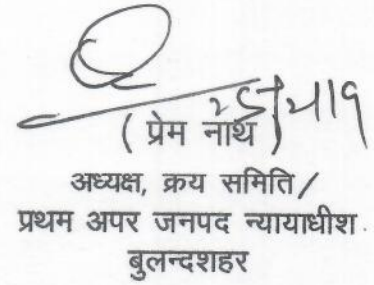 ( प्रेम नाथ )
अध्यक्ष, क्रय समिति /
प्रथम अपर जनपद न्यायाधीश
बुलन्दशहर